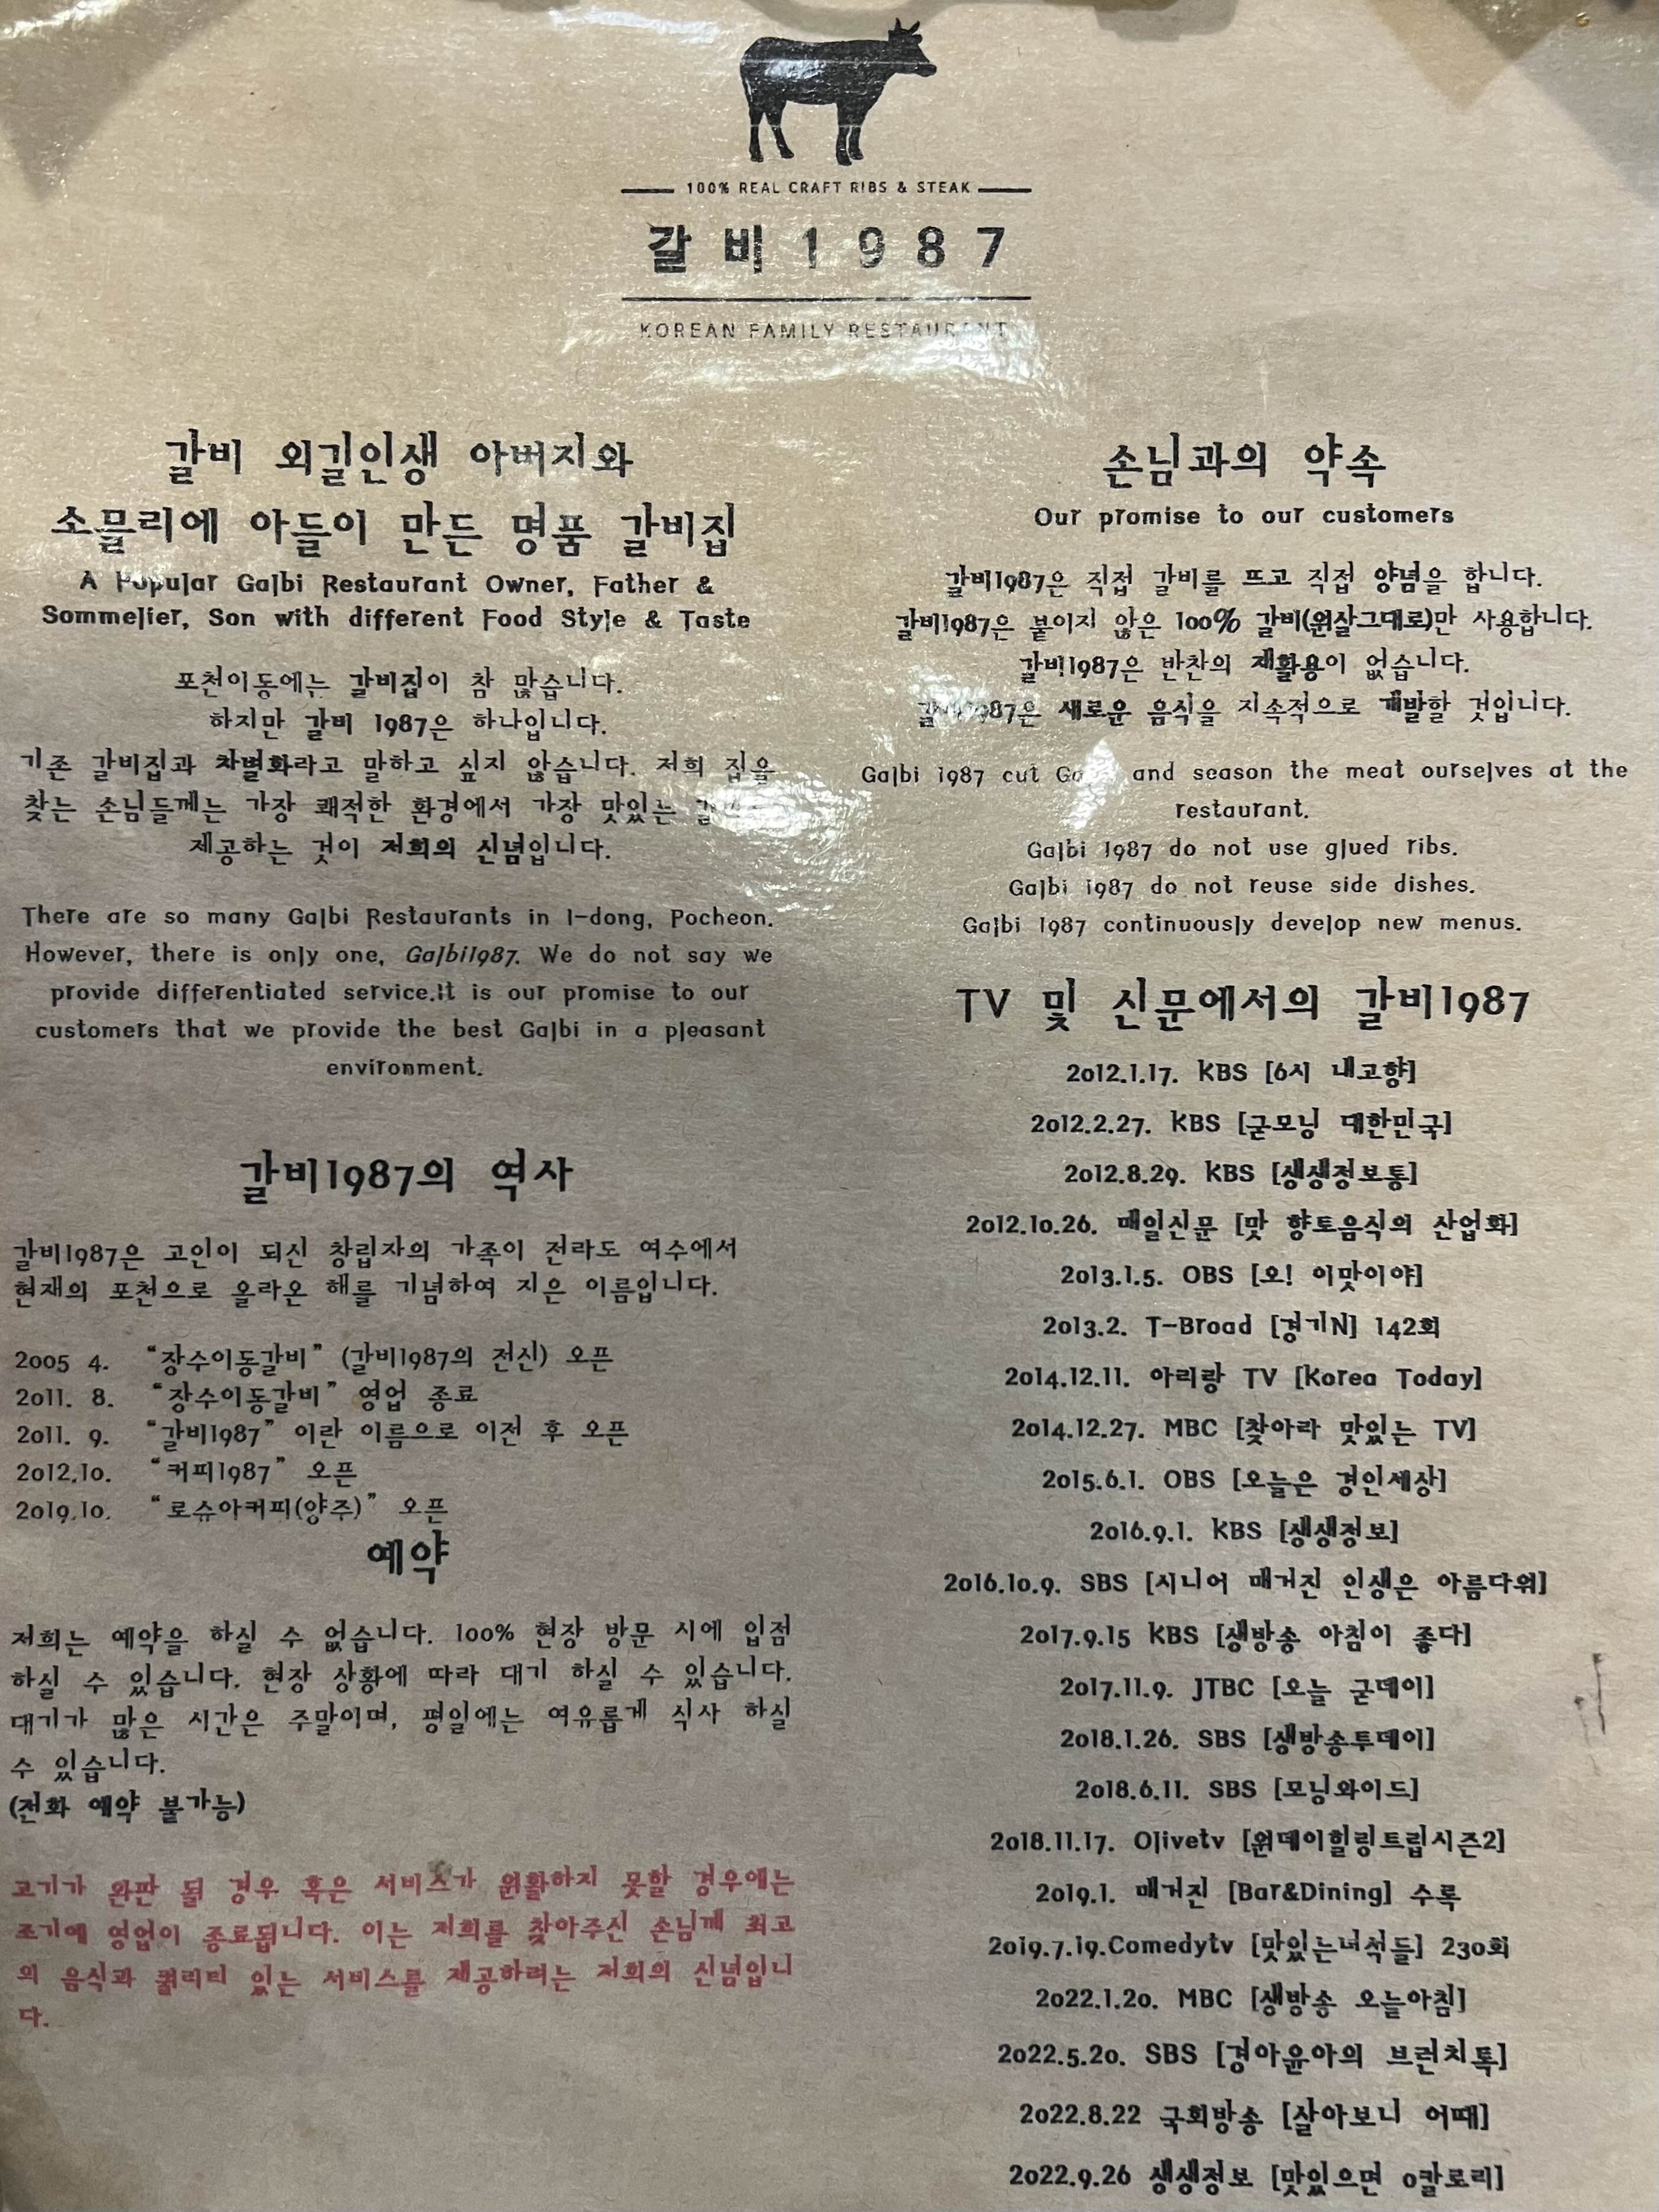 100% REAL CRAFT RIBS & STEAK
갈비1987
KOREAN FAMILY RESTAURANT
갈비 외길인생 아버지와
소믈리에 아들이 만든 명품 갈비집
A Popular Galbi Restaurant Owner, Father &
Sommelier, Son with different Food Style & Taste
포천이동에는 갈비집이 참 많습니다.
하지만 갈비 1987은 하나입니다.
기존 갈비집과 차별화라고 말하고 싶지 않습니다. 저희 집을
찾는 손님들께는 가장 쾌적한 환경에서 가장 맛있는
제공하는 것이 저희의 신념입니다.
There are so many Galbi Restaurants in I-dong, Pocheon.
However, there is only one, Galbi1987. We do not say we
provide differentiated service.It is our promise to our
customers that we provide the best Galbi in a pleasant
environment.
갈비1987의 역사
갈비1987은 고인이 되신 창립자의 가족이 전라도 여수에서
현재의 포천으로 올라온 해를 기념하여 지은 이름입니다.
2005 4. “장수이동갈비” (갈비1987의 전신) 오픈
2011. 8. “장수이동갈비” 영업 종료
2011. 9. “갈비1987” 이란 이름으로 이전 후 오픈
2012.10. “커피1987” 오픈
2019.10. “로슈아커피(양주)” 오픈
예약
저희는 예약을 하실 수 없습니다. 100% 현장 방문 시에 입점
하실 수 있습니다. 현장 상황에 따라 대기 하실 수 있습니다.
대기가 많은 시간은 주말이며, 평일에는 여유롭게 식사 하실
수 있습니다.
(전화 예약 불가능)
고기가 완판 될 경우 혹은 서비스가 원활하지 못할 경우에는
조기에 영업이 종료됩니다. 이는 저희를 찾아주신 손님께 최고
의 음식과 퀄리티 있는 서비스를 제공하려는 저희의 신념입니
다.
손님과의 약속
Our promise to our customers
갈비1987은 직접 갈비를 뜨고 직접 양념을 합니다.
갈비1987은 붙이지 않은 100% 갈비(원살그대로)만 사용합니다.
갈비1987은 반찬의 재활용이 없습니다.
갈비1987은 새로운 음식을 지속적으로 개발할 것입니다.
Galbi 1987 cut and season the meat ourselves at the
restaurant.
Galbi 1987 do not use glued ribs.
Galbi 1987 do not reuse side dishes.
Galbi 1987 continuously develop new menus.
TV 및 신문에서의 갈비1987
2012.1.17. KBS [6시 내고향]
2012.2.27. KBS [굳모닝 대한민국]
2012.8.29. KBS [생생정보통]
2012.10.26. 매일신문 [맛 향토음식의 산업화]
2013.1.5. OBS [오! 이맛이야]
2013.2. T-Broad [경기N] 142회
2014.12.11. 아리랑 TV [Korea Today]
2014.12.27. MBC [찾아라 맛있는 TV]
2015.6.1. OBS [오늘은 경인세상]
2016.9.1. KBS [생생정보]
2016.10.9. SBS [시니어 매거진 인생은 아름다워]
2017.9.15 KBS [생방송 아침이 좋다]
2017.11.9. JTBC [오늘 굳데이]
2018.1.26. SBS [생방송투데이]
2018.6.11. SBS [모닝와이드]
2018.11.17. Olivetv [원데이힐링트립시즌2]
2019.1. 매거진 [Bar&Dining] 수록
2019.7.19.Comedytv [맛있는녀석들] 230회
2022.1.20. MBC [생방송 오늘아침]
2022.5.20. SBS [경아윤아의 브런치톡]
2022.8.22 국회방송 [살아보니 어때]
2022.9.26 생생정보 [맛있으면 0칼로리]